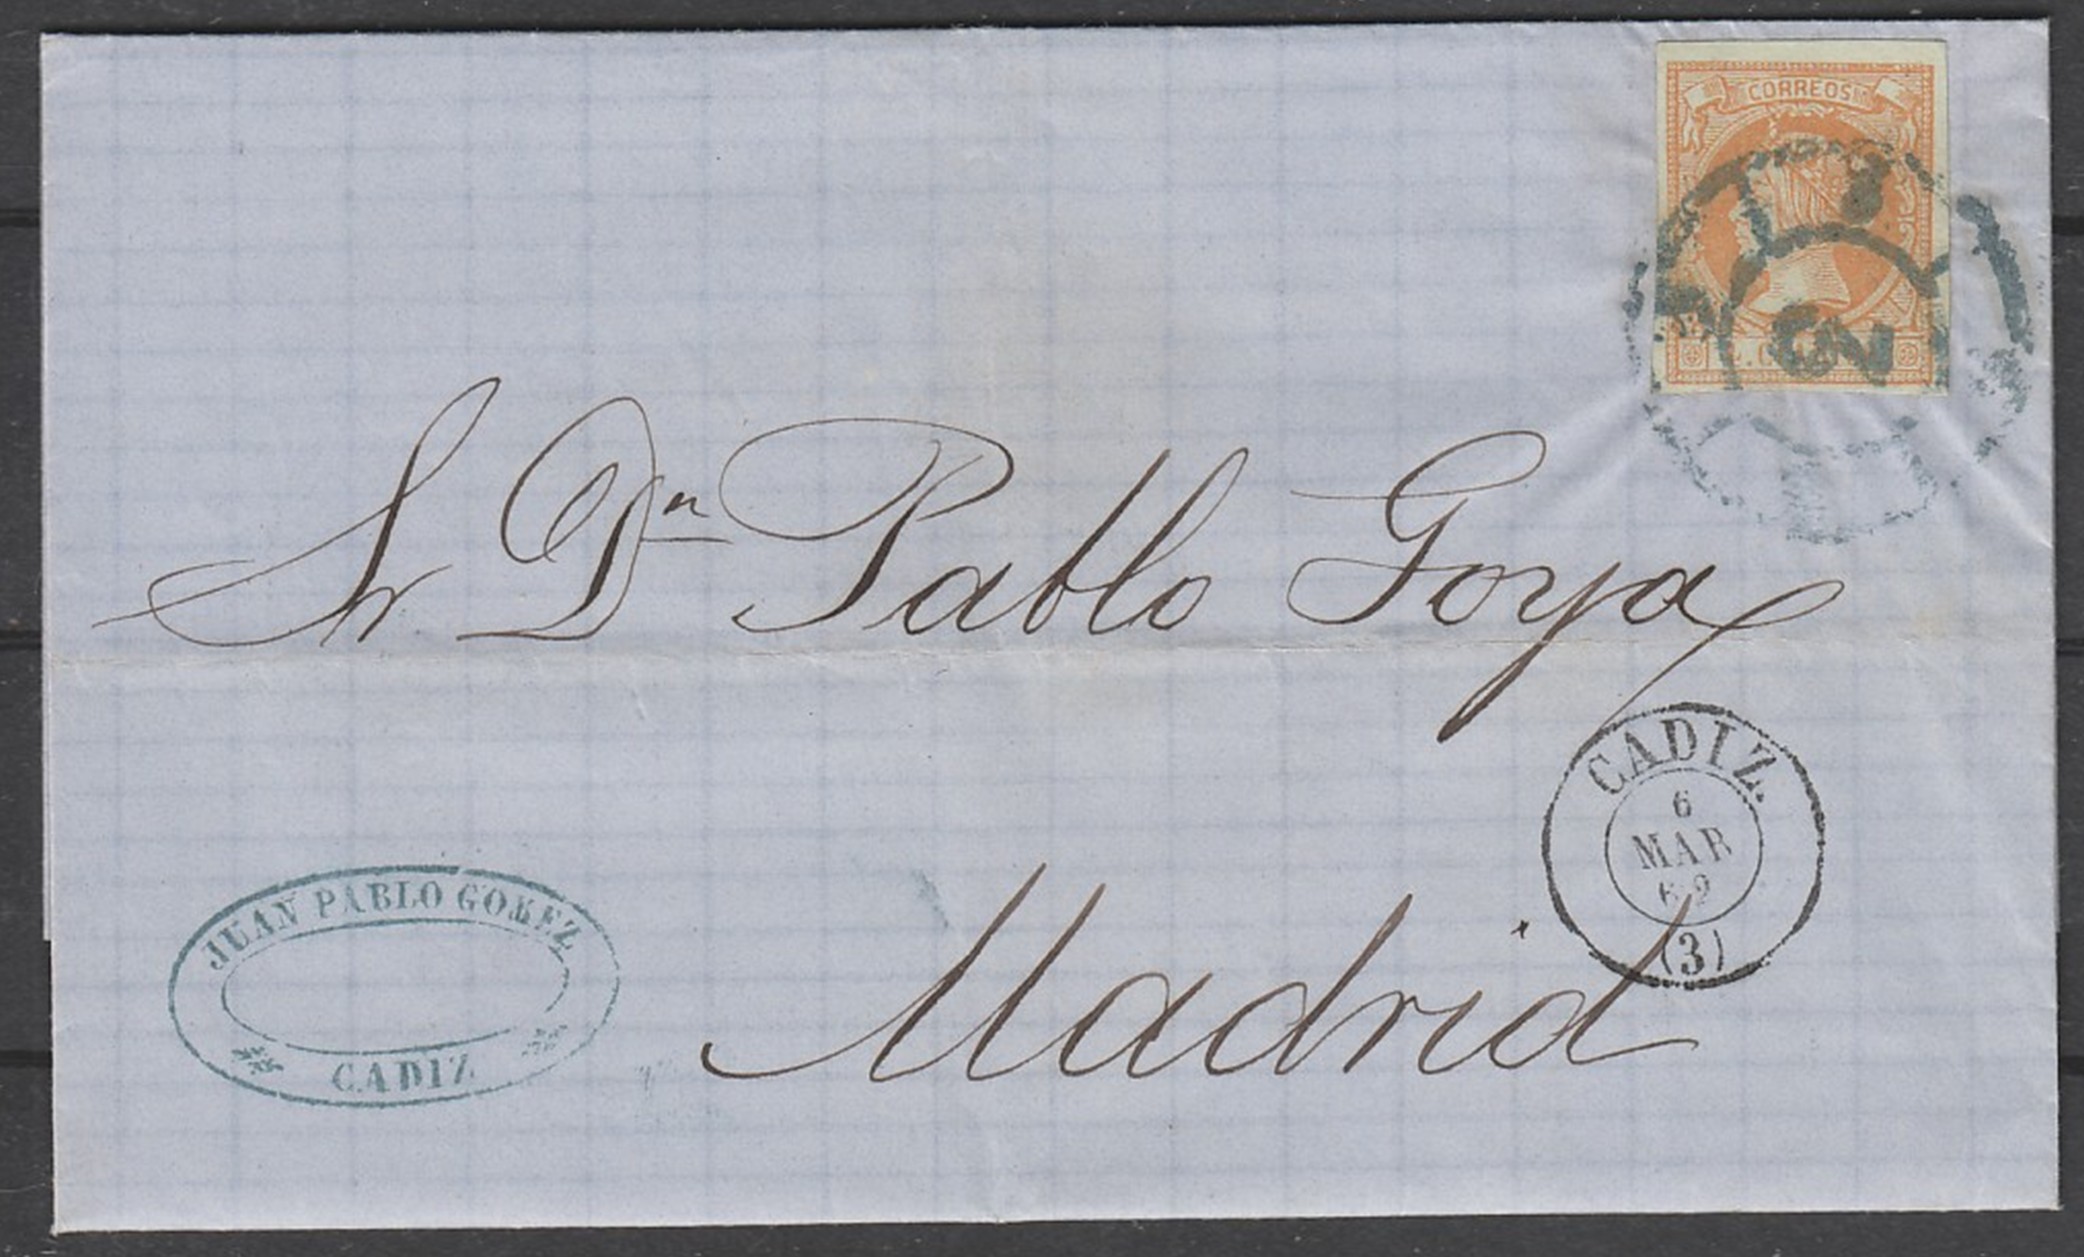 CORREOS
2
Sr Dn Pablo Goya
CADIZ
6
MAR
62
(3)
Madrid
JUAN PABLO GOMEZ
CADIZ